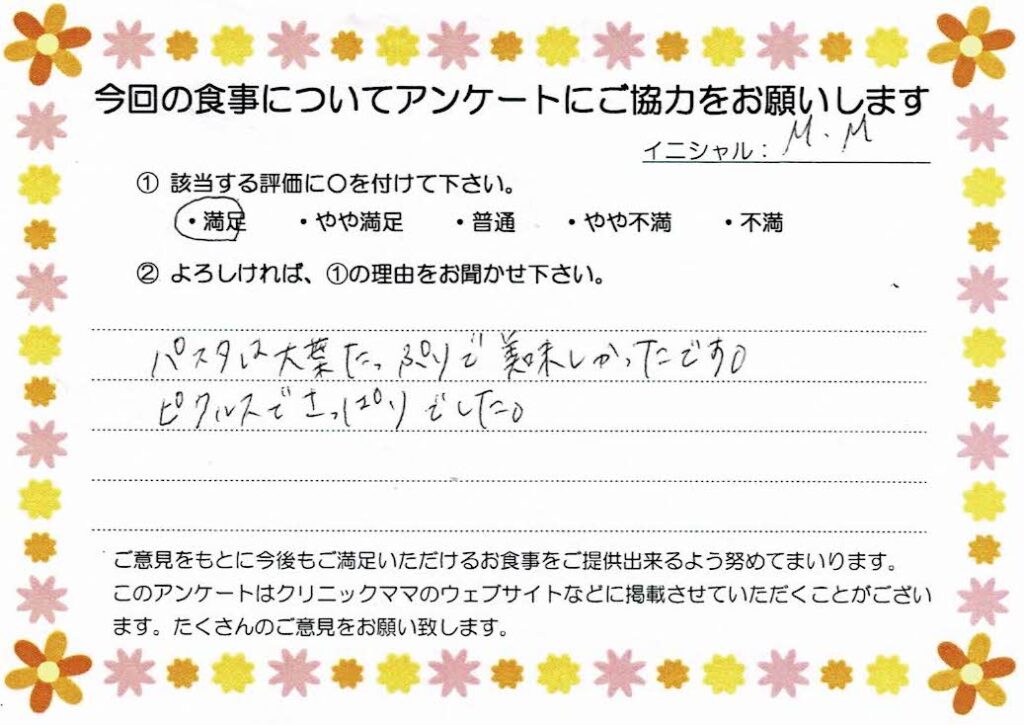 今回の食事についてアンケートにご協力をお願いします
イニシャル: M.M
① 該当する評価に〇を付けて下さい。
・満足 ・やや満足 ・普通 ・やや不満 ・不満
② よろしければ、①の理由をお聞かせ下さい。
パスタは大葉たっぷりで美味しかったです。
ピクルスでさっぱりでした。
ご意見をもとに今後もご満足いただけるお食事をご提供出来るよう努めてまいります。
このアンケートはクリニックママのウェブサイトなどに掲載させていただくことがござい
ます。たくさんのご意見をお願い致します。